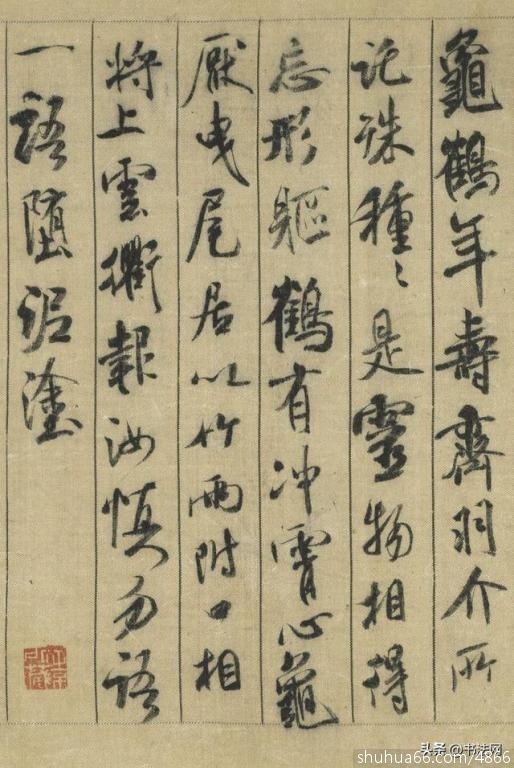 龜鶴年壽齊羽介所
託殊種種是靈物相得
忘形軀鶴有沖霄心龜
厭曳尾居以竹兩附口相
將上雲衢報汝慎勿語
一語墮泥塗
头条 @书法网
shuhua66.com/4866